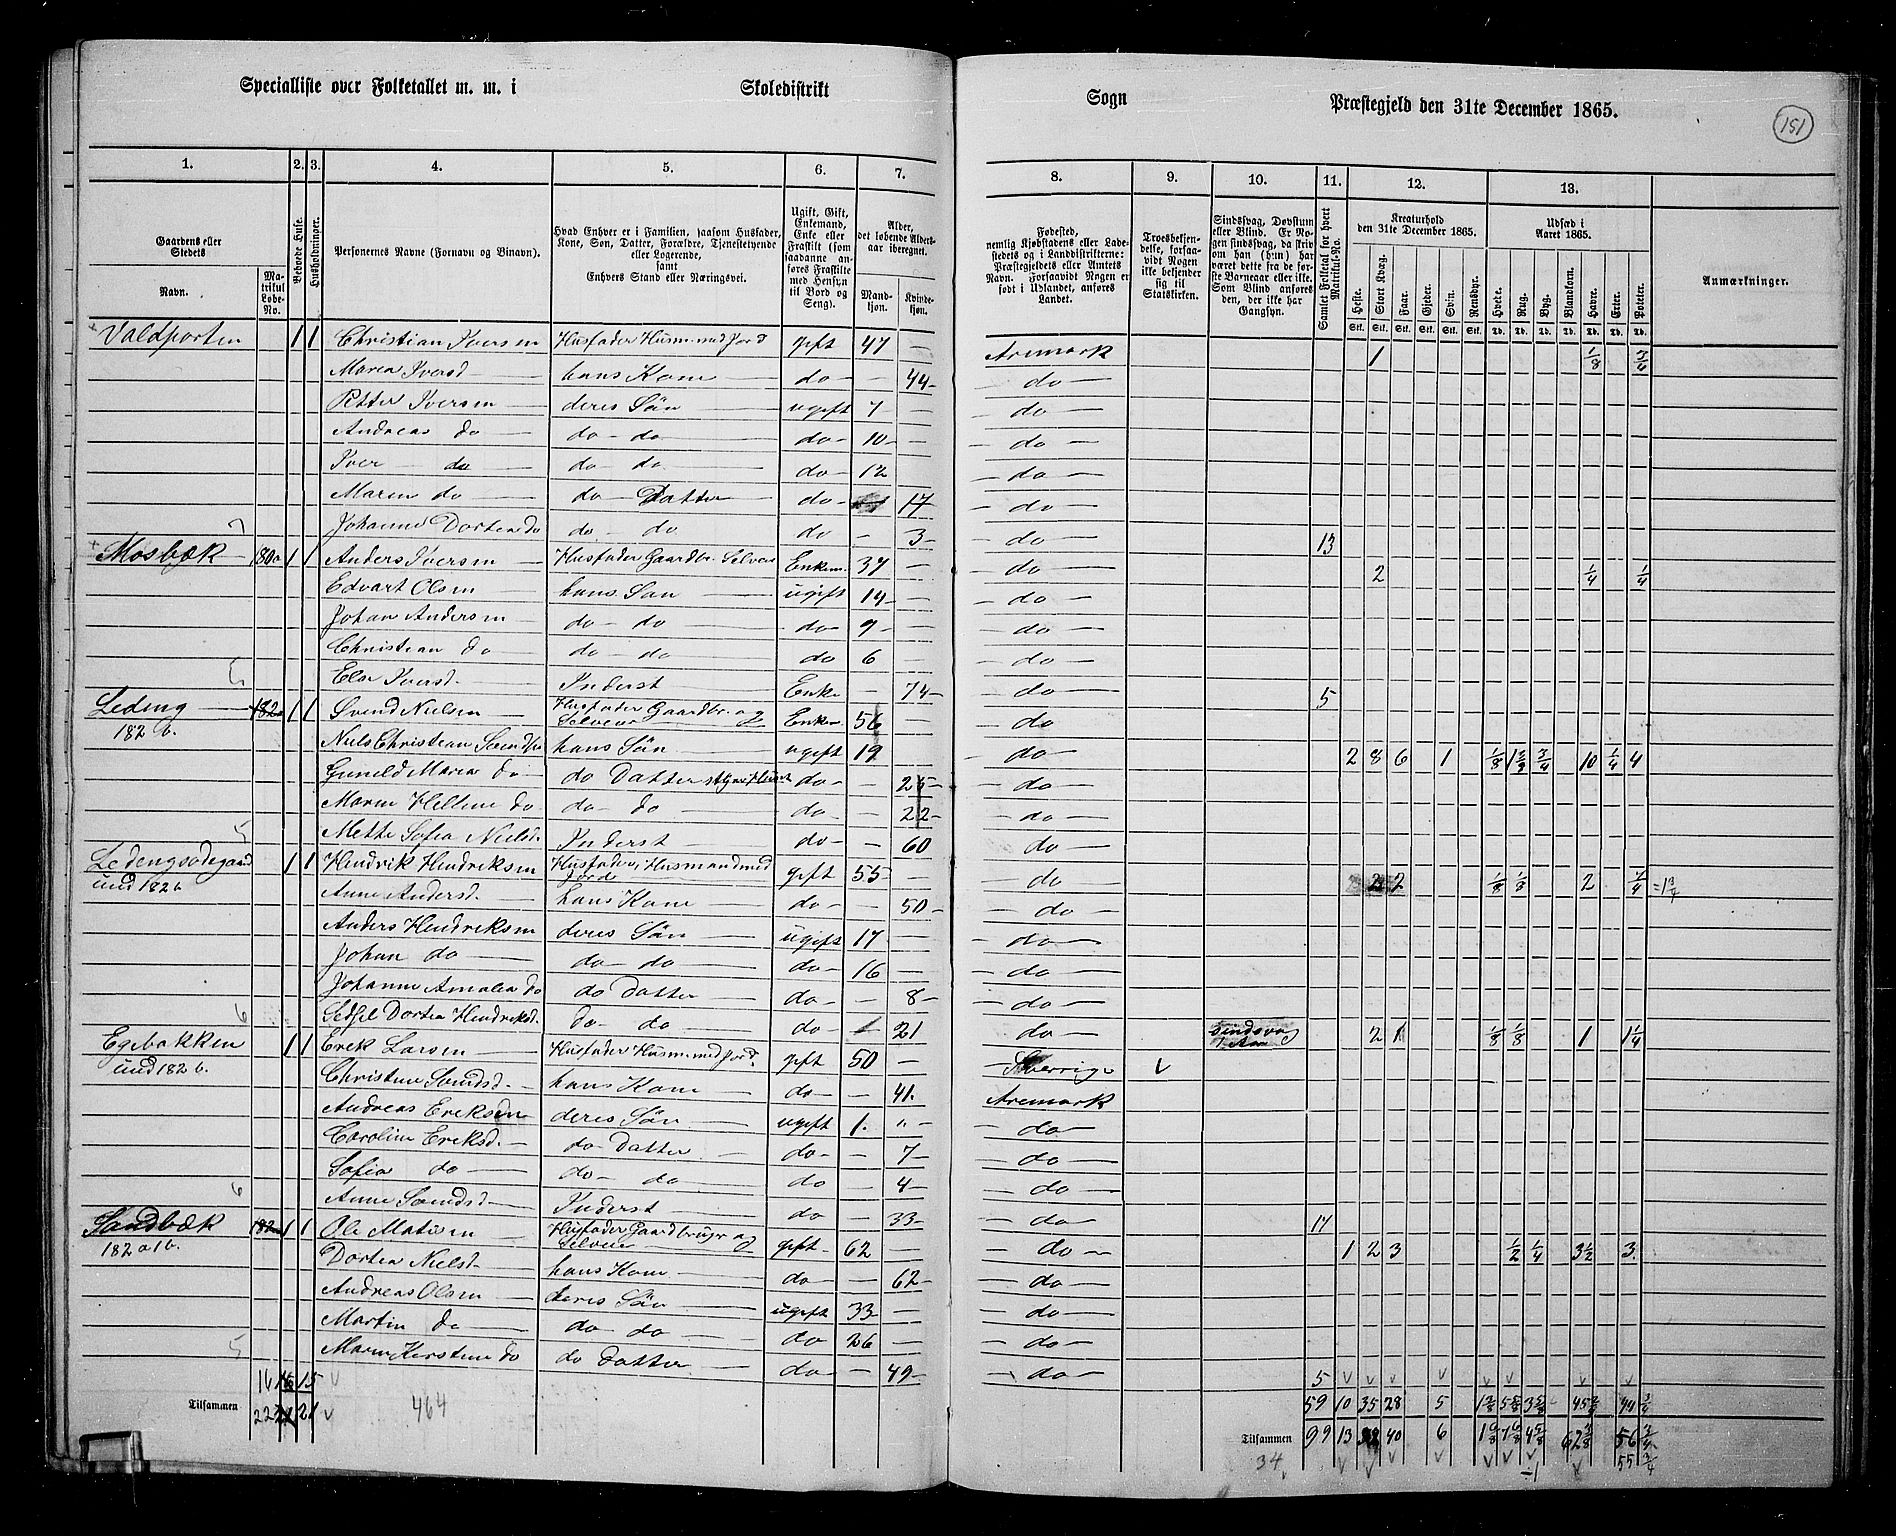 Specialliste over Folketallet m. m. i Skoledistrikt
Sogn Præstegjeld den 31te December 1865.
151
1. 2. 3. 4. 5. 6. 7. 8. 9. 10. 11. 12. 13.
Gaardens eller Stedets
Navn.
Matrikul Løbe-No.
Beboede Huse.
Husholdninger.
Personernes Navne (Fornavn og Binavn).
Hvad Enhver er i Familien, saasom Husfader, Kone, Søn, Datter, Forældre, Tjenestetyende eller Logerende, samt Enhvers Stand eller Næringsvei.
Ugift, Gift, Enkemand, Enke eller Fraskilt (som saadanne anføres Fraskilte med Hensyn til Bord og Seng).
Alder, det løbende Alders-aar iberegnet.
Mandkjøn. Kvindekjøn.
Fødested, nemlig Kjøbstadens eller Ladestedets og i Landdistrikterne: Præstegjeldets eller Amtets Navn. Forsaavidt Nogen er født i Udlandet, anføres Landet.
Troesbekjendelse, forsaavidt Nogen ikke bekjender sig til Statskirken.
Sindssvag, Døvstum eller Blind. Er Nogen sindssvag, da skrives om han (hun) har været dette fra de første Barneaar eller ikke. Som Blind anføres den, der ikke har Gangsyn.
Samlet Folketal for hvert Matrikul-No.
Kreaturhold den 31te December 1865.
Heste. Stort Kvæg. Faar. Gjeder. Svin. Rensdyr.
Udsæd i Aaret 1865.
Hvede. Rug. Byg. Blandkorn. Havre. Erter. Poteter.
Stk. Stk. Stk. Stk. Stk. Stk. Td. Td. Td. Td. Td. Td. Td.
Anmærkninger.
Valdporten 1 1 Christian Iversen Husfader Husm. med Jord gift 47 — Aremark 1 1/8 3/4
Maren Iversd. hans Kone do — 44 do
Petter Iversen deres Søn ugift 7 — do
Andreas do do do do 10 — do
Iver do do do do 12 — do
Maren do do Datter do 17 do
7 Johanne Dortea do do do do — 3 do 13
Mosbæk 180 1 1 Anders Iversen Husfader Gaardbr. Selveier Enkem. 37 — do 2 1/4 1/4
Edvart Olsen hans Søn ugift 14 — do
Johan Andersen do do do 9 — do
Christian do do do do 6 — do
5 Else Iversd. Inderst Enke — 74 do 5
Ledeng 182 1 1 Svend Nielsen Husfader Gaardbr. og Selveier Enkem 56 — do
182 b. Niels Christian Svendsen hans Søn ugift 19 do 2 8 6 1 1/8 3/4 10 1/4 4
Gunild Maria do do Datter do — 25 do
Maren Hellene do do do do — 22 do
5 Mette Sofia Nielsd. Inderst do — 60 do
Ledengsødegaard 1 1 Hendrik Hendriksen Husfader, Husmand med Jord gift 55 — do 2 2 1/8 1/8 2 1/4
und 182 b Anne Andersd. hans Kone do — 50 do
Anders Hendriksen deres Søn ugift 17 — do
Johan do do do do 16 — do
Johanne Amalia do do Datter do — 8 do
6 Sedsel Dortea Hendriksd. do do do 21 do 2 1 1/8 1/8 1 1 1/4
Egebakken 1 1 Erek Larsen Husfader Husm. med Jord gift 50 — Sverrige v
und 182 b. Christine Svendsd. hans Kone do — 41. Aremark
Andreas Ereksen deres Søn ugift 1. " do
Caroline Ereksd. do Datter do — 7 do
Sofia do do do do — 4 do
6 Anne Svendsd. Inderst do — 33 do 17
Sandbæk 182 1 1 Ole Matisen Husfader Gaardbruger og Selveier gift 62 — do 1 2 3 1/2 1/4 3 1/2 3.
182 a 1 b. Dortea Nielsd. hans Kone do — 62 do
Andreas Olsen deres Søn ugift 33 — do
Martin do do do do 26 — do
5 Maren Kirstine do do Datter do — do 5
16 15 v 59 10 35 28 5
Tilsammen 21 v 464
Tilsammen 99 13 40 6
34